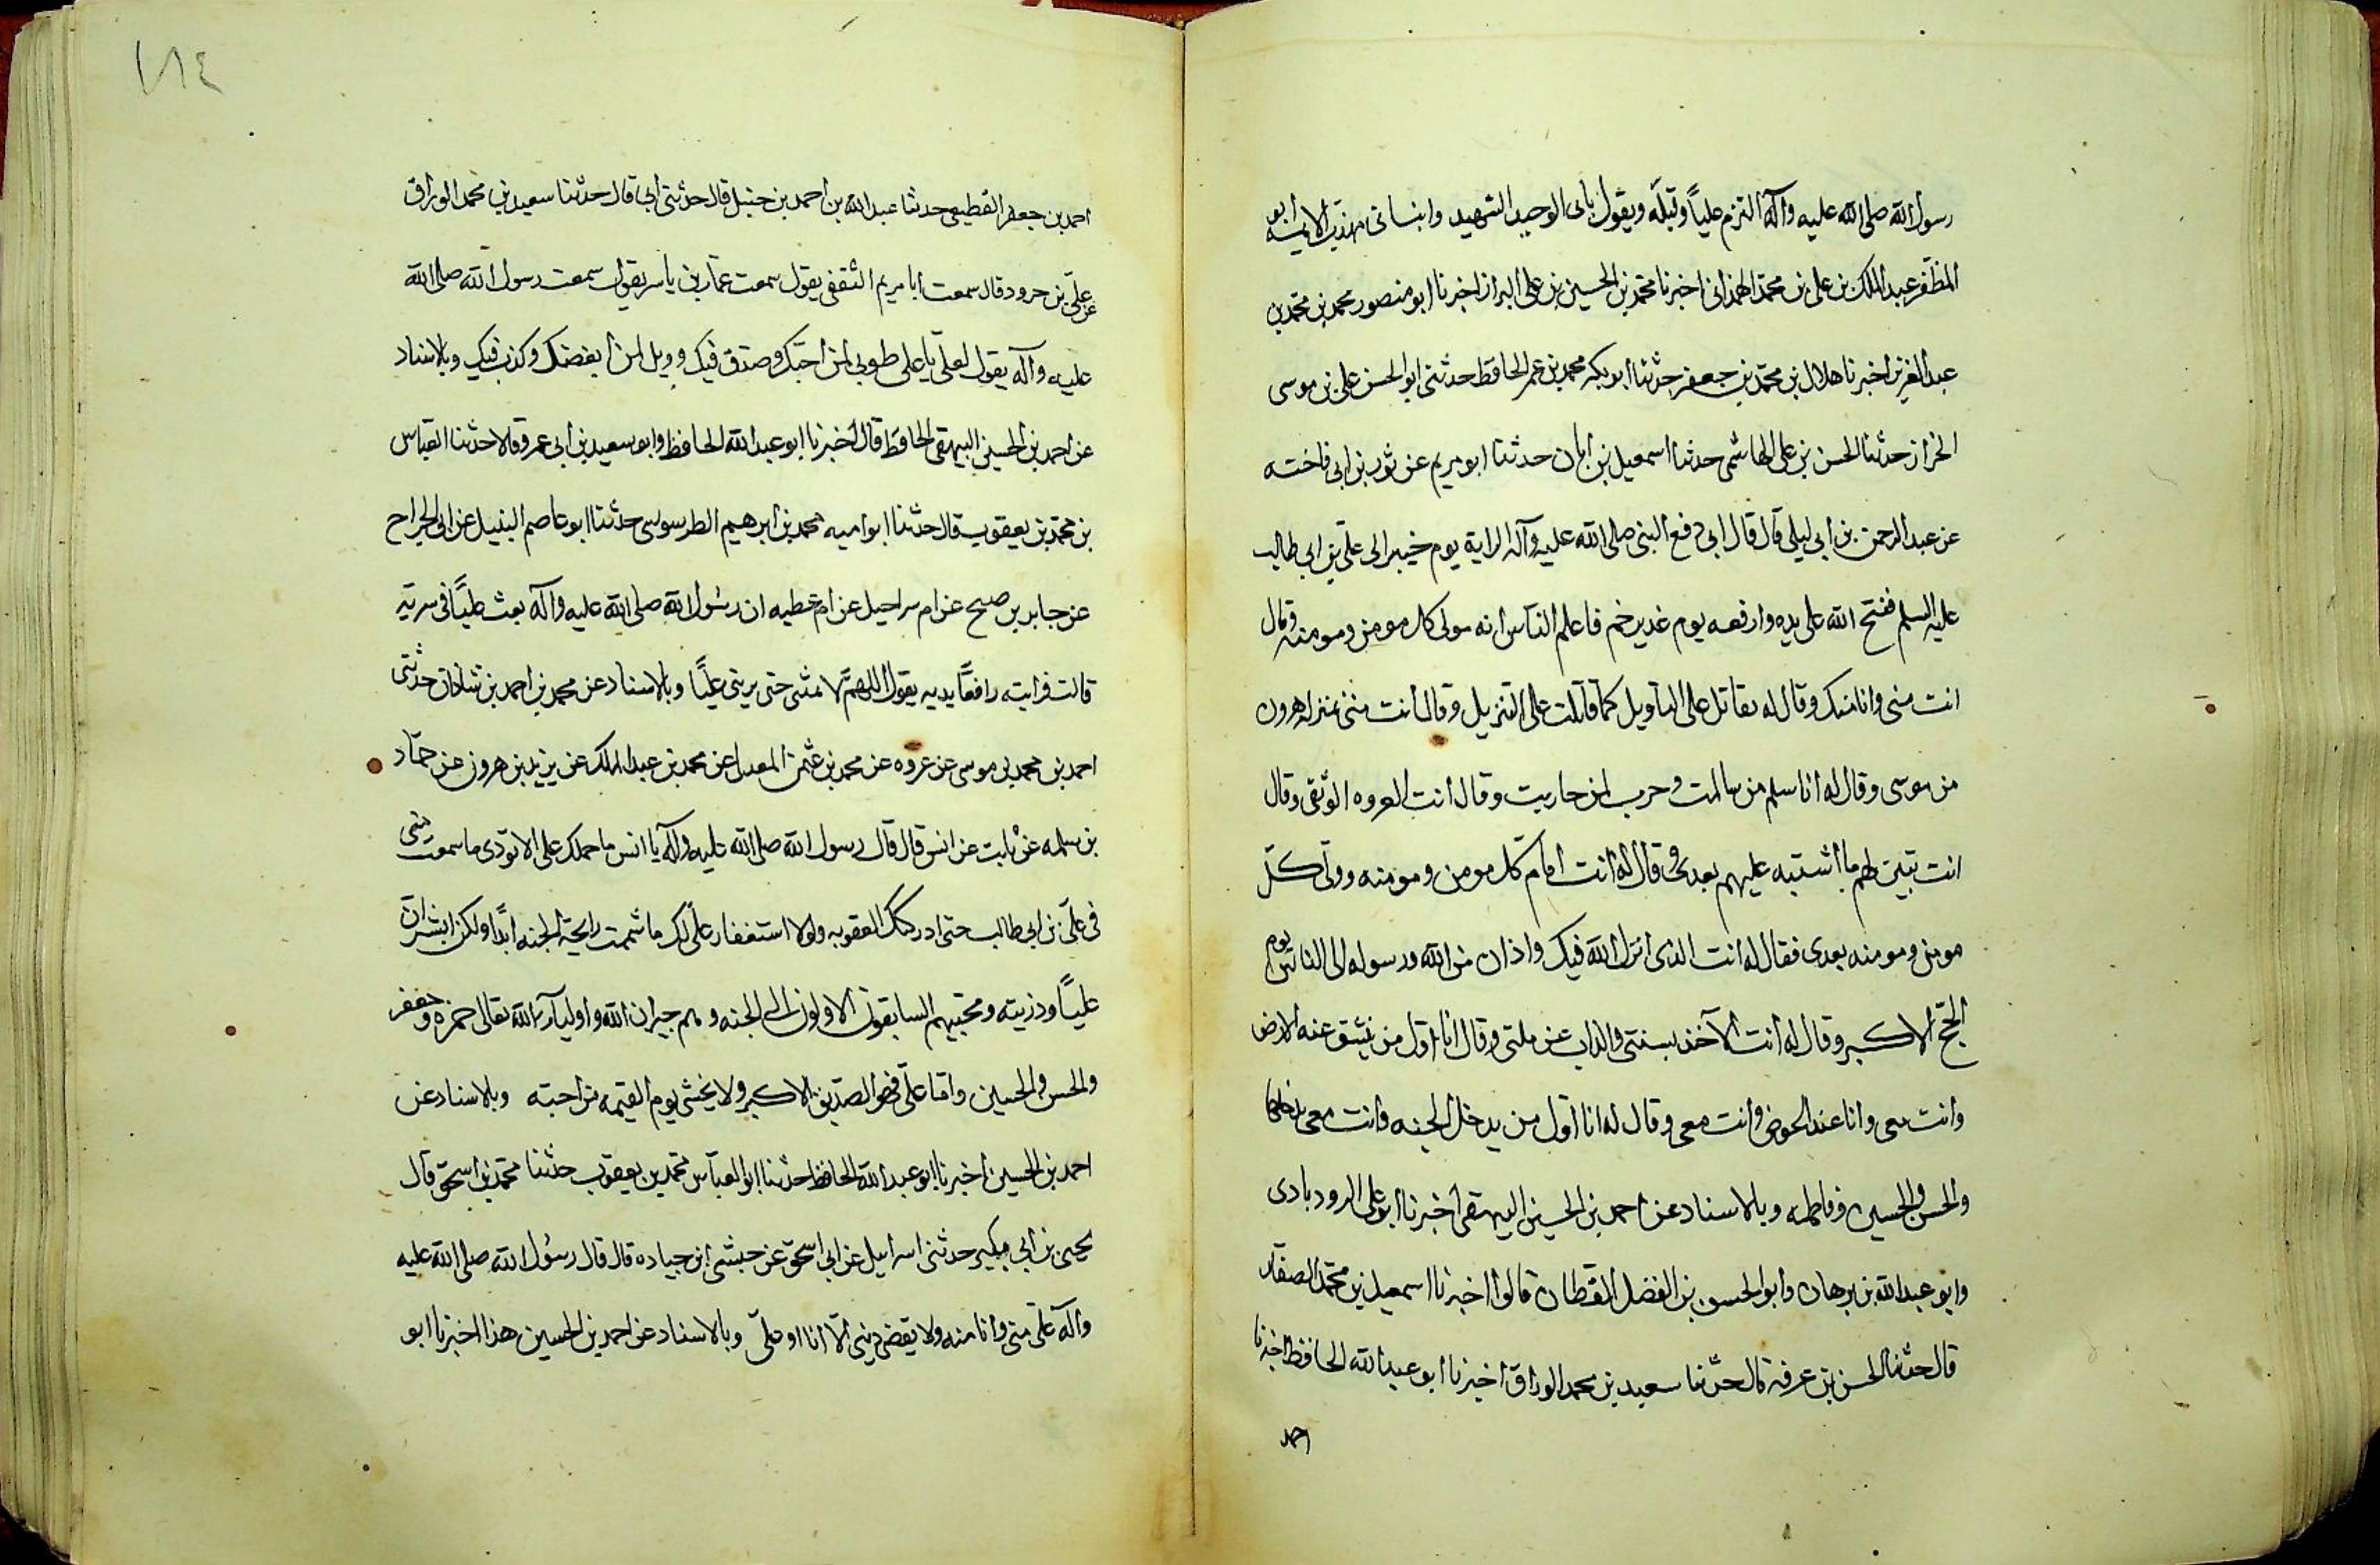 رسول الله صلى الله عليه وآله التزم عليًا وقبله ويقول بابى الوحيد الشهيد وانبانى مهذب الايمه ابو
المظفر عبد الملك بن على بن محمد الهمدانى اخبرنا محمد بن الحسين بن على البزاز اخبرنا ابو منصور محمد بن محمد بن
عبد العزيز اخبرنا هلال بن محمد بن جعفر حدثنا ابو بكر محمد بن عمر الحافظ حدثنى ابو الحسن على بن موسى
الخزاز حدثنا الحسن بن على الهاشمى حدثنا اسمعيل بن ابان حدثنا ابو مريم عن ثور بن ابى فاخته
عن عبد الرحمن بن ابى ليلى قال قال ابى دفع النبى صلى الله عليه وآله الراية يوم خيبر الى على بن ابى طالب
عليه السلم ففتح الله على يده وارفعه يوم غدير خم فاعلم الناس انه مولى كل مومن ومومنه وقال
انت منى وانا منك وقال له تقاتل على التاويل كما قاتلت على التنزيل وقال انت منى بمنزلة هرون
من موسى وقال له انا سلم من سالمت وحرب لمن حاربت وقال انت العروه الوثقى وقال
انت تبين لهم ما اشتبه عليهم بعدى وقال له انت امام كل مومن ومومنه وولى كل
مومن ومومنه بعدى فقال له انت الذى انزل الله فيك واذان من الله ورسوله الى الناس يوم
الحج الاكبر وقال له انت الآخذ بسنتى والذاب عن ملتى وقال انا اول من ينشق عنه الارض
وانت معى وانا عند الحوض وانت معى وقال له انا اول من يدخل الجنه وانت معى يدخلها
والحسن والحسين وفاطمه وبالاسناد عن احمد بن الحسين البيهقى اخبرنا ابو على الرودبادى
وابو عبد الله بن برهان وابو الحسين بن الفضل القطان قالوا اخبرنا اسمعيل بن محمد الصفار
قال حدثنا الحسن بن عرفه قال حدثنا سعيد بن محمد الوراق اخبرنا ابو عبد الله الحافظ اخبرنا
احمد
١٨٤
احمد بن جعفر القطيعى حدثنا عبد الله بن احمد بن حنبل قال حدثنى ابى قال حدثنا سعيد بن محمد الوراق
عن على بن حرود قال سمعت ابا مريم الثقفى يقول سمعت عمار بن ياسر يقول سمعت رسول الله صلى الله
عليه وآله يقول لعلى يا على طوبى لمن احبك وصدق فيك وويل لمن ابغضك وكذب فيك وبالاسناد
عن احمد بن الحسين البيهقى الحافظ قال اخبرنا ابو عبد الله الحافظ وابو سعيد بن ابى عمرو قالا حدثنا العباس
بن محمد بن يعقوب قال حدثنا ابو اميه محمد بن ابرهيم الطرسوسى حدثنا ابو عاصم النبيل عن ابى الجراح
عن جابر بن صبح عن ام سراحيل عن ام عطيه ان رسول الله صلى الله عليه وآله بعث عليًا فى سريه
قالت فرايته رافعًا يديه يقول اللهم لا تمتنى حتى يرينى عليًا وبالاسناد عن محمد بن احمد بن شاذان حدثنى
احمد بن محمد بن موسى عن عروه عن محمد بن عثمن المعدل عن محمد بن عبد الملك عن يزيد بن هرون عن حماد
بن سلمه عن ثابت عن انس قال قال رسول الله صلى الله عليه وآله يا انس ما حملك على الا تودى ما سمعت منى
فى على بن ابى طالب حتى ادركتك العقوبه ولولا استغفار على لك ما شممت رايحة الجنه ابدًا ولكن ابشر ان
عليًا وذريته ومحبيهم السابقون الاولون الى الجنه وهم جيران الله واوليآء الله تعالى حمزه وجعفر
والحسن والحسين واما على فهو الصديق الاكبر ولا يخشى يوم القيمه من احبه وبالاسناد عن
احمد بن الحسين اخبرنا ابو عبد الله الحافظ حدثنا ابو العباس محمد بن يعقوب حدثنا محمد بن اسحق قال
يحيى بن ابى بكير حدثنى اسراييل عن ابى اسحق عن حبشى ابن جياده قال قال رسول الله صلى الله عليه
وآله على منى وانا منه ولا يقضى دينى الا انا او على وبالاسناد عن احمد بن الحسين هذا اخبرنا ابو